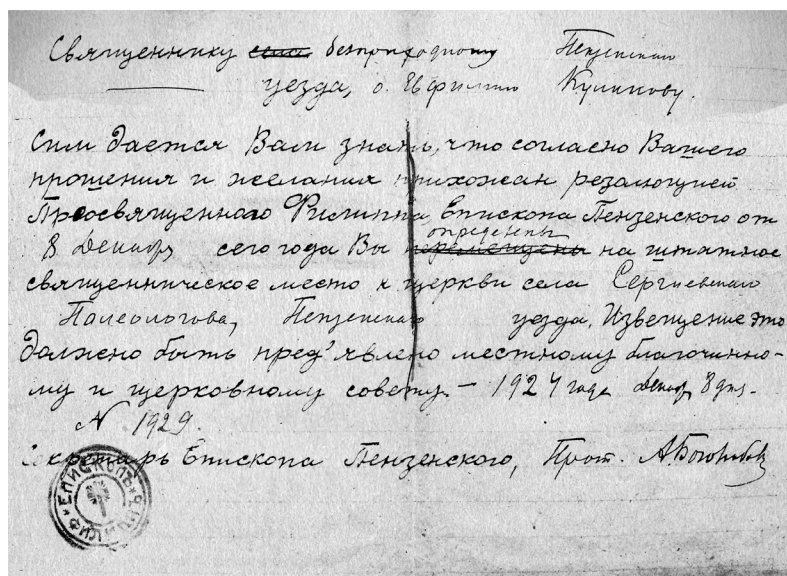 Священнику села безприходному Пензенскаго
уезда, о. Евфимию Куликову.
Сим дается Вам знать, что согласно Вашего
прошения и желания прихожан резолюцией
Преосвященного Филиппа, Епископа Пензенского от
8 Декабр. сего года Вы перемещены определены на штатное
священническое место к церкви села Сергиевскаго
Палеологова, Пензенскаго уезда. Извещение это
должно быть пред'явлено местному благочинно-
му и церковному совету. — 1924 года Декабр. 8 дня.
N 1929.
Секретарь Епископа Пензенского, Прот.
ЕПИСКОПЪ